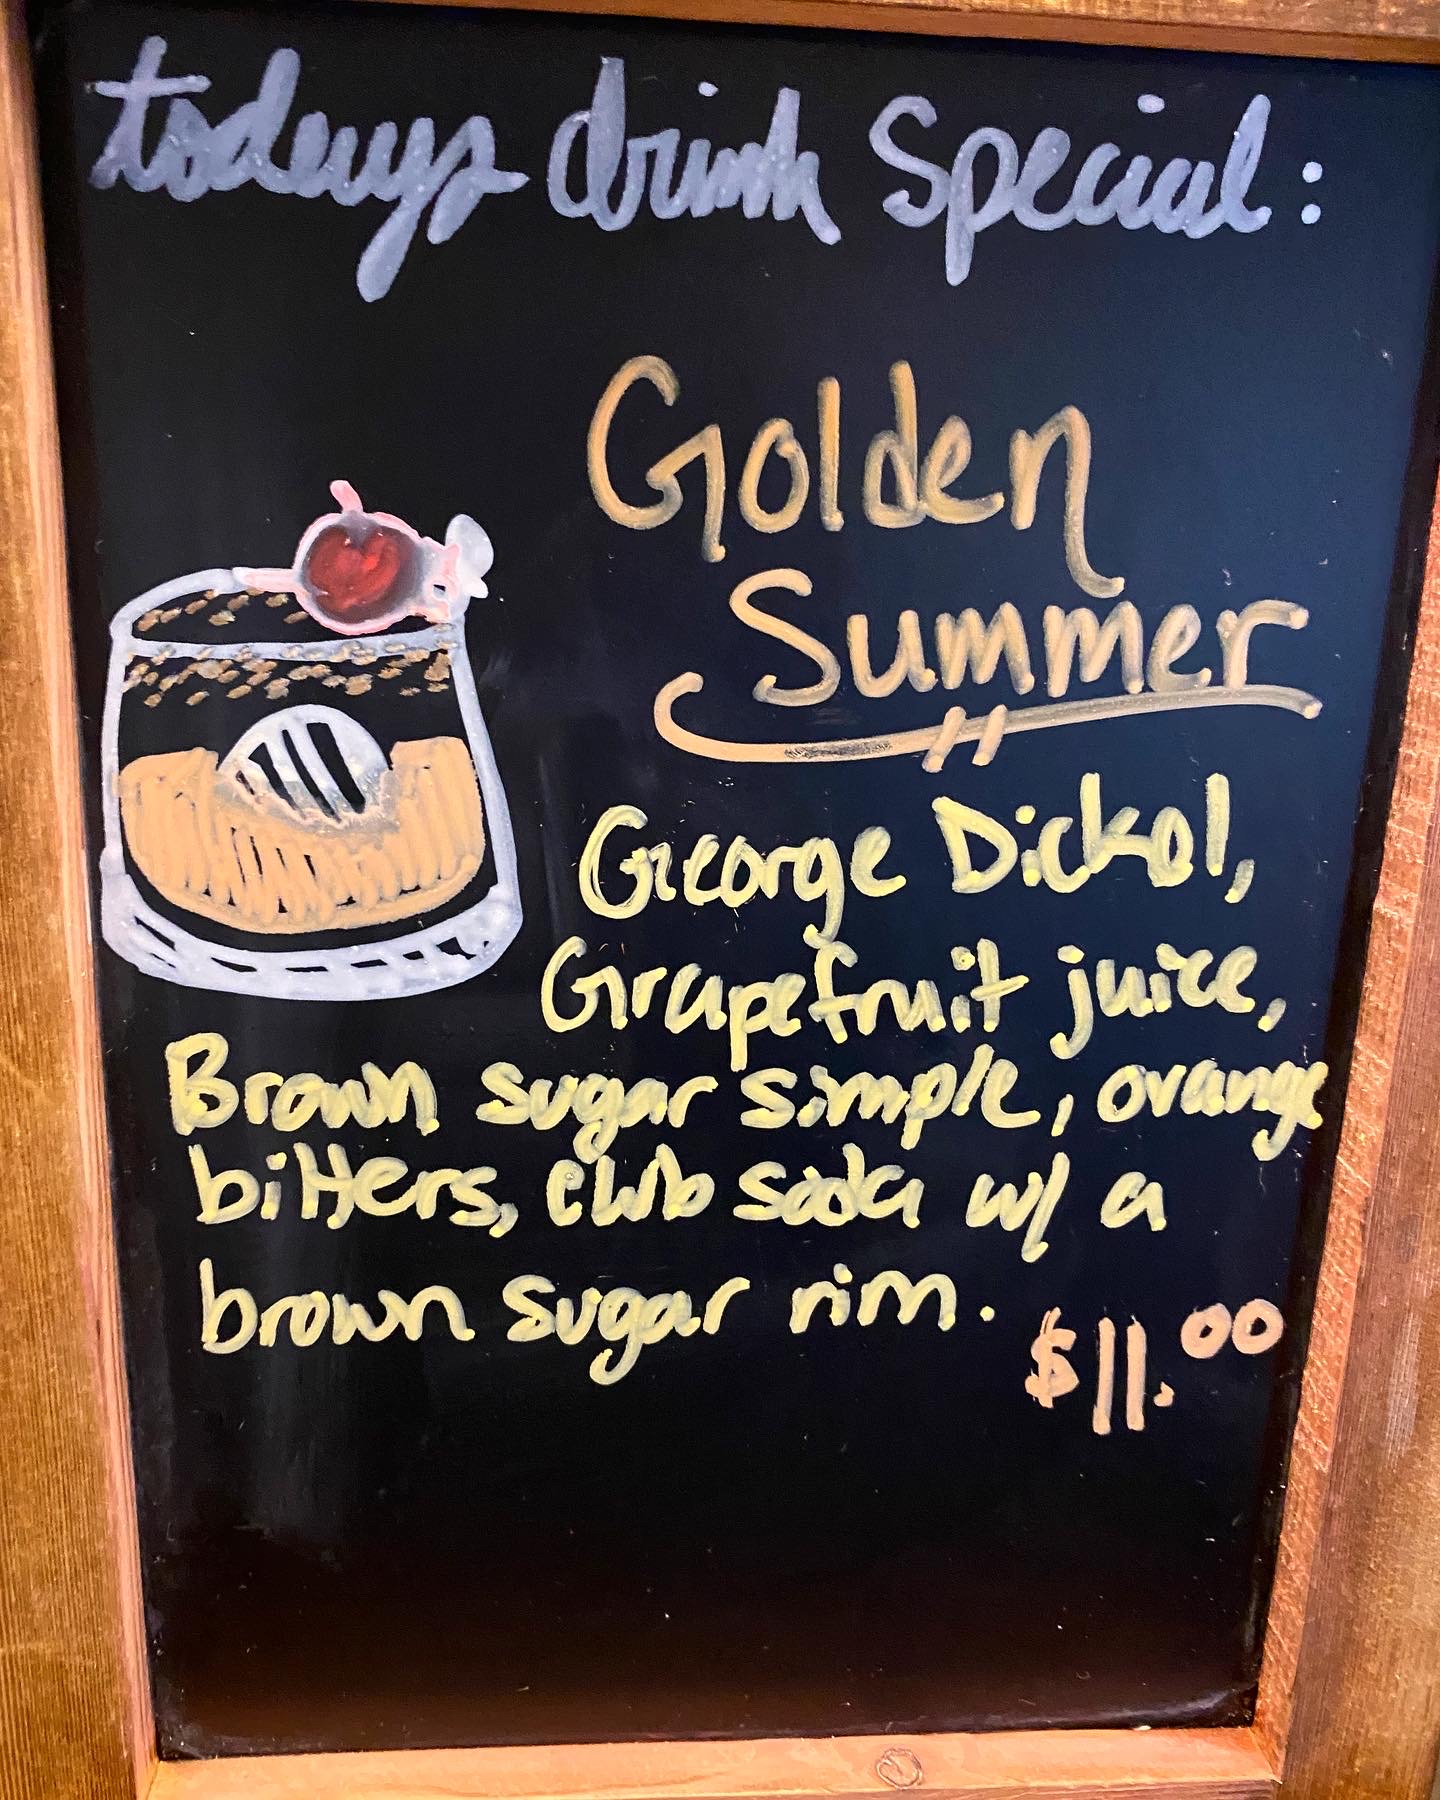 todays drink Special:
Golden
Summer
George Dickel,
Grapefruit juice,
Brown sugar simple, orange
bitters, club soda w/ a
brown sugar rim.
$11.00